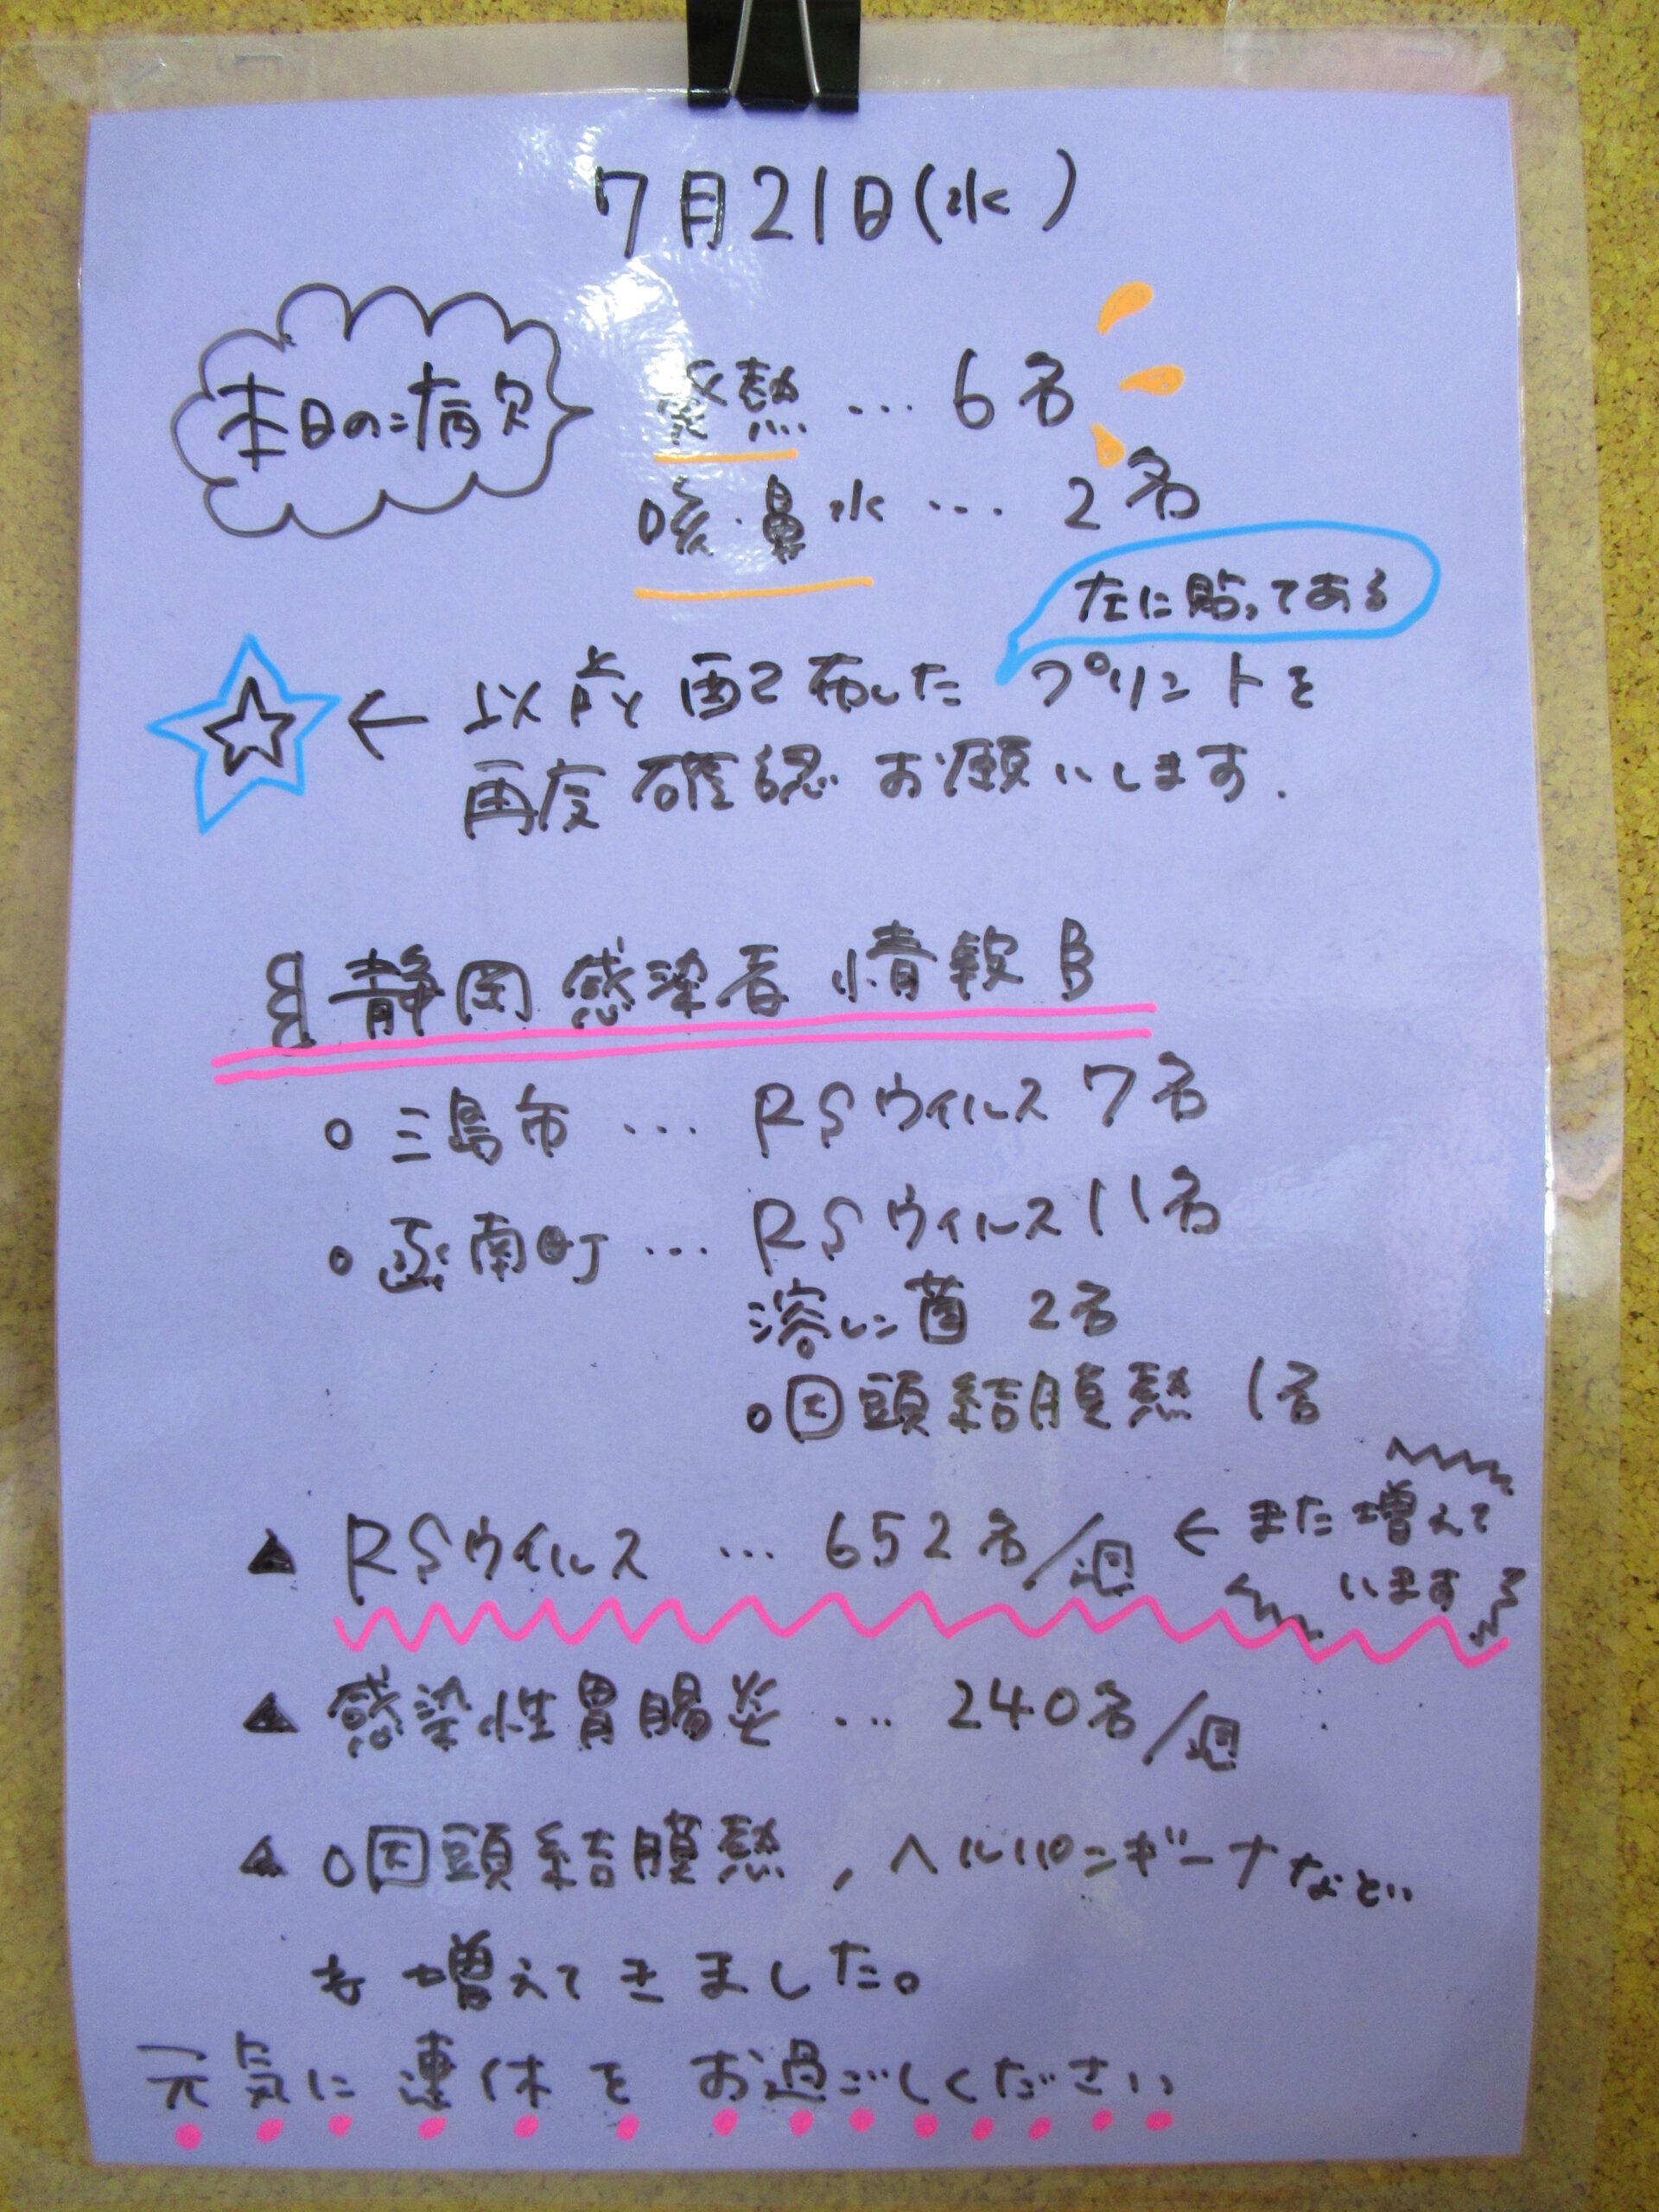 7月21日(水)
本日の病欠
発熱…6名
咳・鼻水…2名
左に貼ってある
☆← 以前配布した プリントを
再度確認お願いします.
静岡感染者情報
○三島市… RSウイルス 7名
○函南町… RSウイルス 11名
溶レン菌 2名
咽頭結膜熱 1名
▲ RSウイルス … 652名/週 ← また増えて
います
▲ 感染性胃腸炎 … 240名/週
▲ 咽頭結膜熱, ヘルパンギーナなど
も増えてきました。
元気に連休をお過ごしください